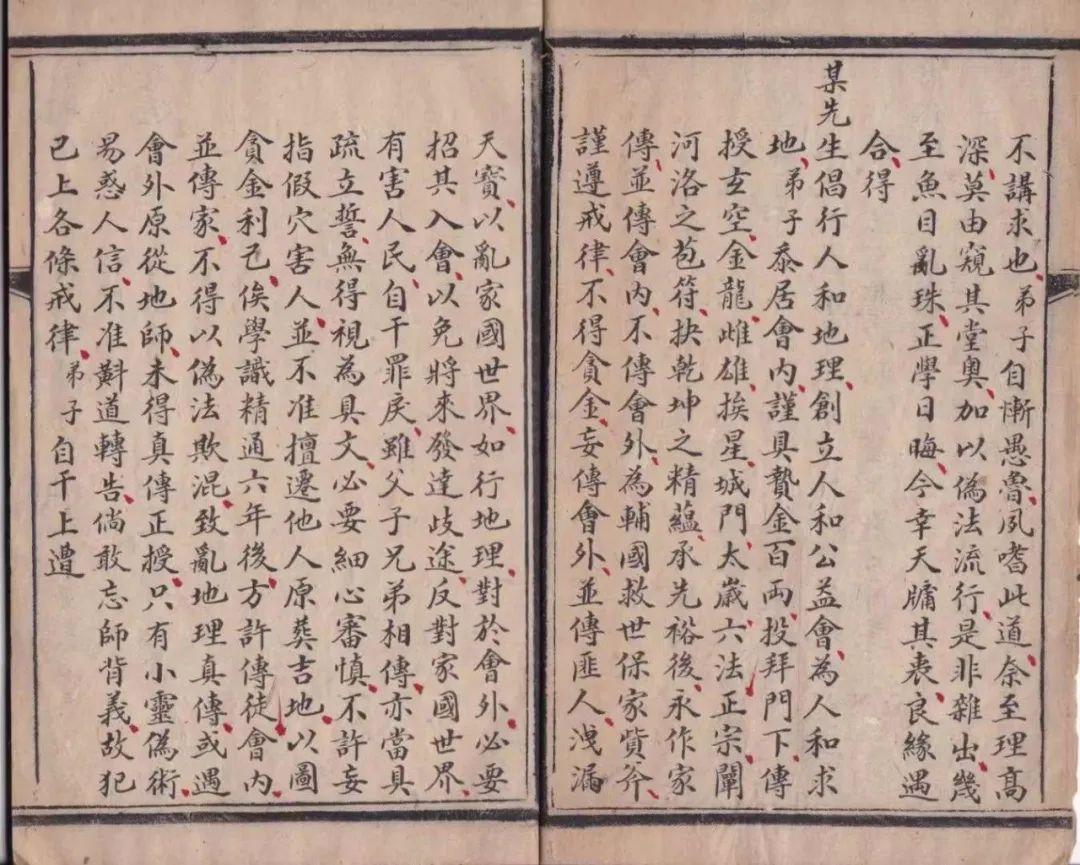 不講求也、弟子自慚愚魯、夙嗜此道、奈至理高
深、莫由窺其堂奧、加以偽法流行、是非雜出、幾
至魚目亂珠、正學日晦、今幸天牖其衷、良緣遇
合、得
某先生倡行人和地理、創立人和公益會、為人和求
地、弟子忝居會內、謹具贄金百両、投拜門下、傳
授玄空、金龍、雌雄、挨星、城門、太歲、六法正宗、闡
河洛之苞符、抉乾坤之精蘊、承先裕後、永作家
傳、並傳會內、不傳會外、為輔國救世保家貲斧、
謹遵戒律、不得貪金、妄傳會外、並傳匪人、洩漏
天寶、以亂家國世界、如行地理、對於會外、必要
招其入會、以免將來發達歧途、反對家國世界、
有害人民、自干罪戾、雖父子兄弟相傳、亦當具
疏立誓、無得視為具文、必要細心審慎、不許妄
指假穴害人、並不准擅遷他人原葬吉地、以圖
貪金利己、俟學識精通六年後、方許傳徒、會內、
並傳家、不得以偽法欺混、致亂地理真傳、或遇
會外原從地師、未得真傳正授、只有小靈偽術、
易惑人信、不准斟道轉告、倘敢忘師背義、故犯
已上各條戒律、弟子自干上遭